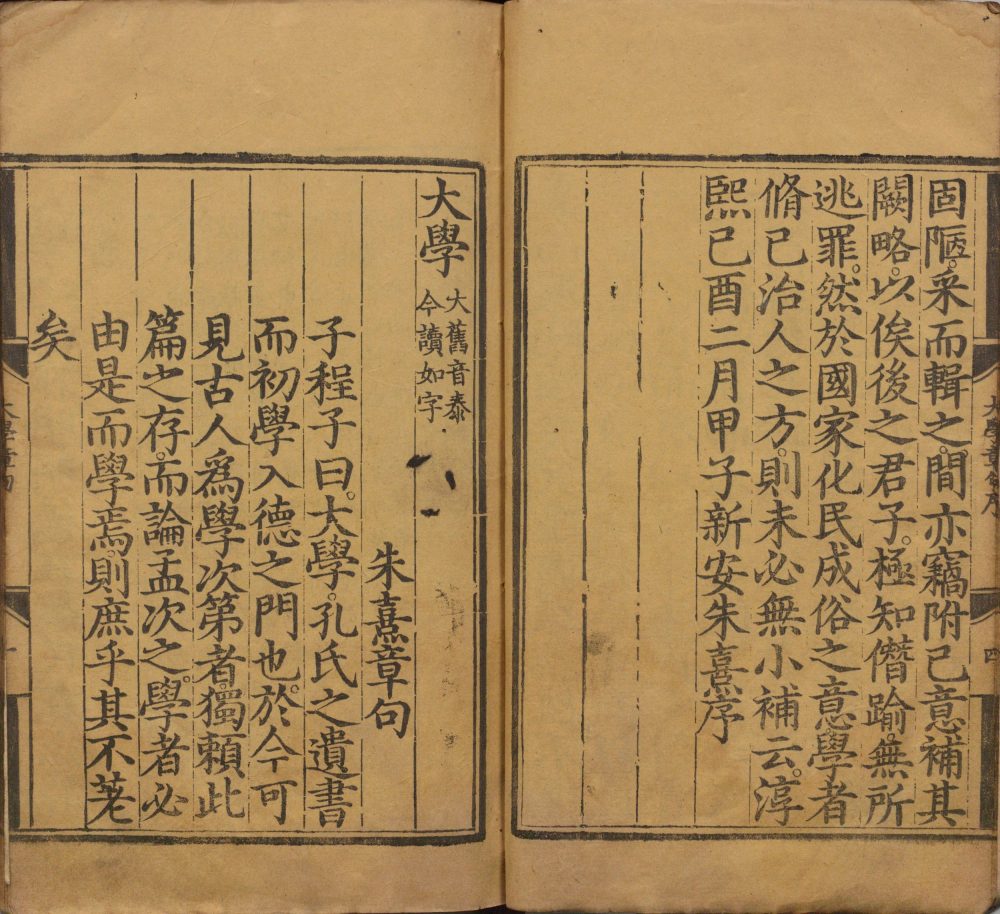 固陋。采而輯之。間亦竊附己意補其
闕略。以俟後之君子。極知僭踰。無所
逃罪。然於國家化民成俗之意。學者
脩己治人之方。則未必無小補云。淳
熙己酉二月甲子新安朱熹序
四
大學 大舊音泰
今讀如字
朱熹章句
子程子曰。大學。孔氏之遺書
而初學入德之門也。於今可
見古人爲學次第者。獨賴此
篇之存。而論孟次之。學者必
由是而學焉。則庶乎其不差
矣